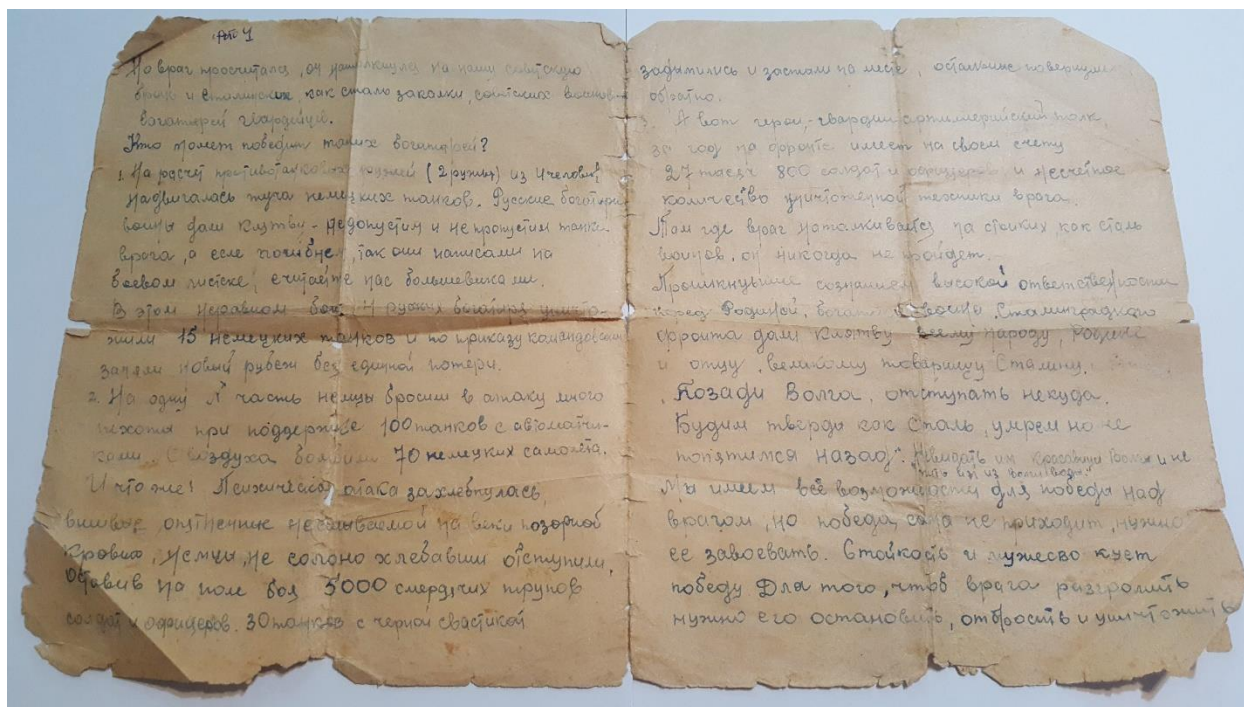 Но враг просчитался, он натолкнулся на нашу советскую
брик и сталинских, как сталь закалки, советских воинов
богатырей гвардейцев.
Кто может победить таких богатырей?
1. На расчет противотанковых ружей (2 ружья) из 4 человек,
надвигалась туча немецких танков. Русские богатыри
воины дали клятву - недопустим и не пропустим танки
врага, а если погибнем, так они написали на
боевом листке, считайте нас большевиками.
В этом неравном бою 4 русских богатыря уничто
жили 15 немецких танков и по приказу командования
заняли новый рубеж без единой потери.
2. На одну часть немцы бросили в атаку много
пехоты при поддержке 100 танков с автоматчи-
ками. С воздуха бомбили 70 немецких самолета.
И что же! Психическая атака захлебнулась
несмываемой на веки позорной
кровью, немцы, не солоно хлебавши отступили,
Оставив на поле боя 5000 смердчих трупов
солдат и офицеров. 30 танков с черной свастикой
задымились и застыли на месте, остальные повернули
обратно.
3. А вот герои, - гвардии артиллерийский полк,
за год на фронте имеет на своем счету
27 тысяч 800 солдат и офицеров и несчетное
количество уничтоженной техники врага.
Там где враг наталкивается на стойких, как сталь
воинов, он никогда не пройдет.
Проникнувшие сознанием высокой ответственности
перед Родиной, богатыри воины Сталинградского
фронта дали клятву всему народу, Родине
и отцу, великому товарищу Сталину.
"Позади Волга, отступать некуда,
Будим тверды как сталь, умрем но не
попятимся назад". Невидать им красавици Волги и не
пить им из волги воды"
Мы имеем всё возможности для победы над
врагом, но победа, сама не приходит, нужно
ее завоевать. Стойкость и мужесво куёт
победу Для того, чтоб врага разгромить
нужно его остановить, отбросить и уничтожить